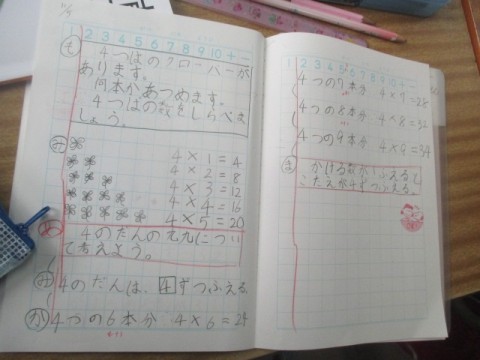 11/9
1 2 3 4 5 6 7 8 9 10 + -
も 4つはのクローバーが
あります。
何本かあつめます。
4つはの数をしらべま
しょう。
み
4×1=4
4×2=8
4×3=12
4×4=16
4×5=20
め 4のだんの九九につい
て考えよう。
み 4のだんは、4ずつふえる
か 4つの6本分 4×6=24
1 2 3 4 5 6 7 8 9 10 + -
4つの7本分 4×7=28
4つの8本分 4×8=32
4つの9本分 4×9=34
ま かける数が1ふえると
こたえが4ずつふえる。